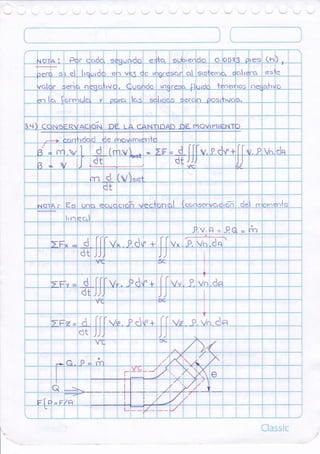 NOTA: Por cada segundo esta subiendo 0.0093 pies (h),
pero si el liquido en vez de ingresar al sistema, saliera este
valor seria negativo. Cuando ingresa fluido tenemos negativo
en la formula y para las salidas seran positivas.
3.4) CONSERVACIÓN DE LA CANTIDAD DE MOVIMIENTO
cantidad de movimiento
B = m.V d (m.V)sist = ΣF = d ∭ V.ρ dV + ∬ V.ρ.Vn.dA
β = V dt dt VC SC
m d (V)sist
dt
NOTA: Es una ecuación vectorial (conservación del momento
lineal)
ρ.V.A = ρQ = ṁ
ΣFx = d ∭ Vx.ρ dV + ∬ Vx.ρ.Vn.dA
dt VC SC
ΣFy = d ∭ Vy.ρ dV + ∬ Vy.ρ.Vn.dA
dt VC SC
ΣFz = d ∭ Vz.ρ dV + ∬ Vz.ρ.Vn.dA
dt VC SC
Q.ρ = ṁ
VC
θ
Q
F[P=F/A
Classic